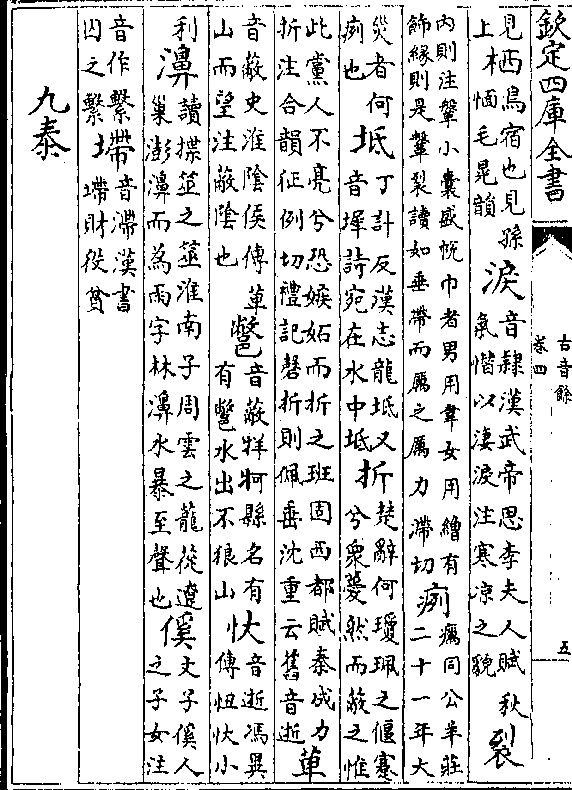 欽定四庫全書
古音餘
卷四
五
見栖鳥宿也見孫
上林恤毛晃韻
淚
音隸漢武帝思李夫人賦秋
氣憯以淒淚注寒涼之貌
裂
内則注鞶小囊盛帨巾者男用韋女用繒有
飾緣則是鞶裂讀如垂帶而厲之厲力滯切
㾐
癘同公羊莊
二十一年大
災者何
㾐也
坻
丁計反漢志龍坻又
音墀詩宛在水中坻
折
楚辭何瓊珮之偃蹇
兮衆薆然而蔽之惟
此黨人不亮兮恐嫉妬而折之班固西都賦秦成力
折注合韻征例切禮記磬折則佩垂沈重云舊音逝
萆
音蔽史淮陰侯傳萆
山而望注蔽陰也
鄨
音蔽牂牁縣名有
有鄨水出不狼山
忕
音逝馮異
傳忸忕小
利
濞
讀揲筮之筮淮南子周雲之蘢蓯遼
巢澎濞而為雨字林濞水暴至聲也
傒
文子傒人
之子女注
音作繫
囚之繫
墆
音滯漢書
墆財役貧
九泰